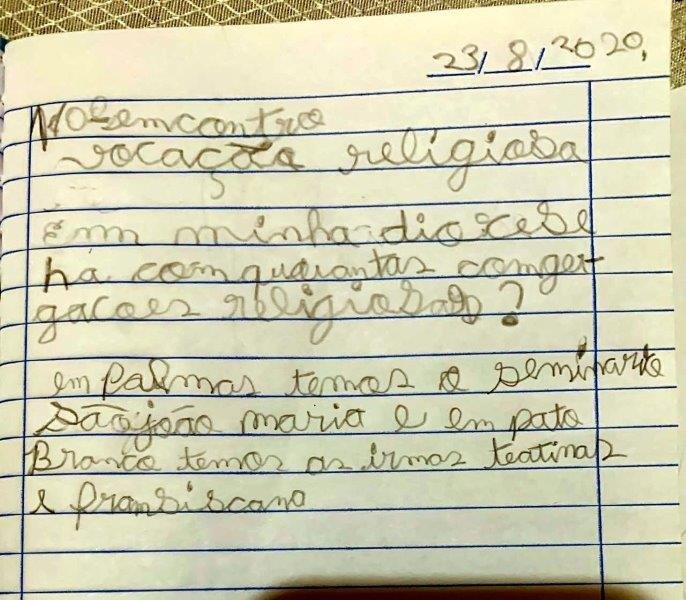 23/8/2020,
10º emcontro
vocação religiosa
Em minha diocese
ha com quarantas comger-
gacoes religiosas?
em palmas temos o seminario
São joão maria e em pato
Branco temos as irmas teatinas
e framsiscano